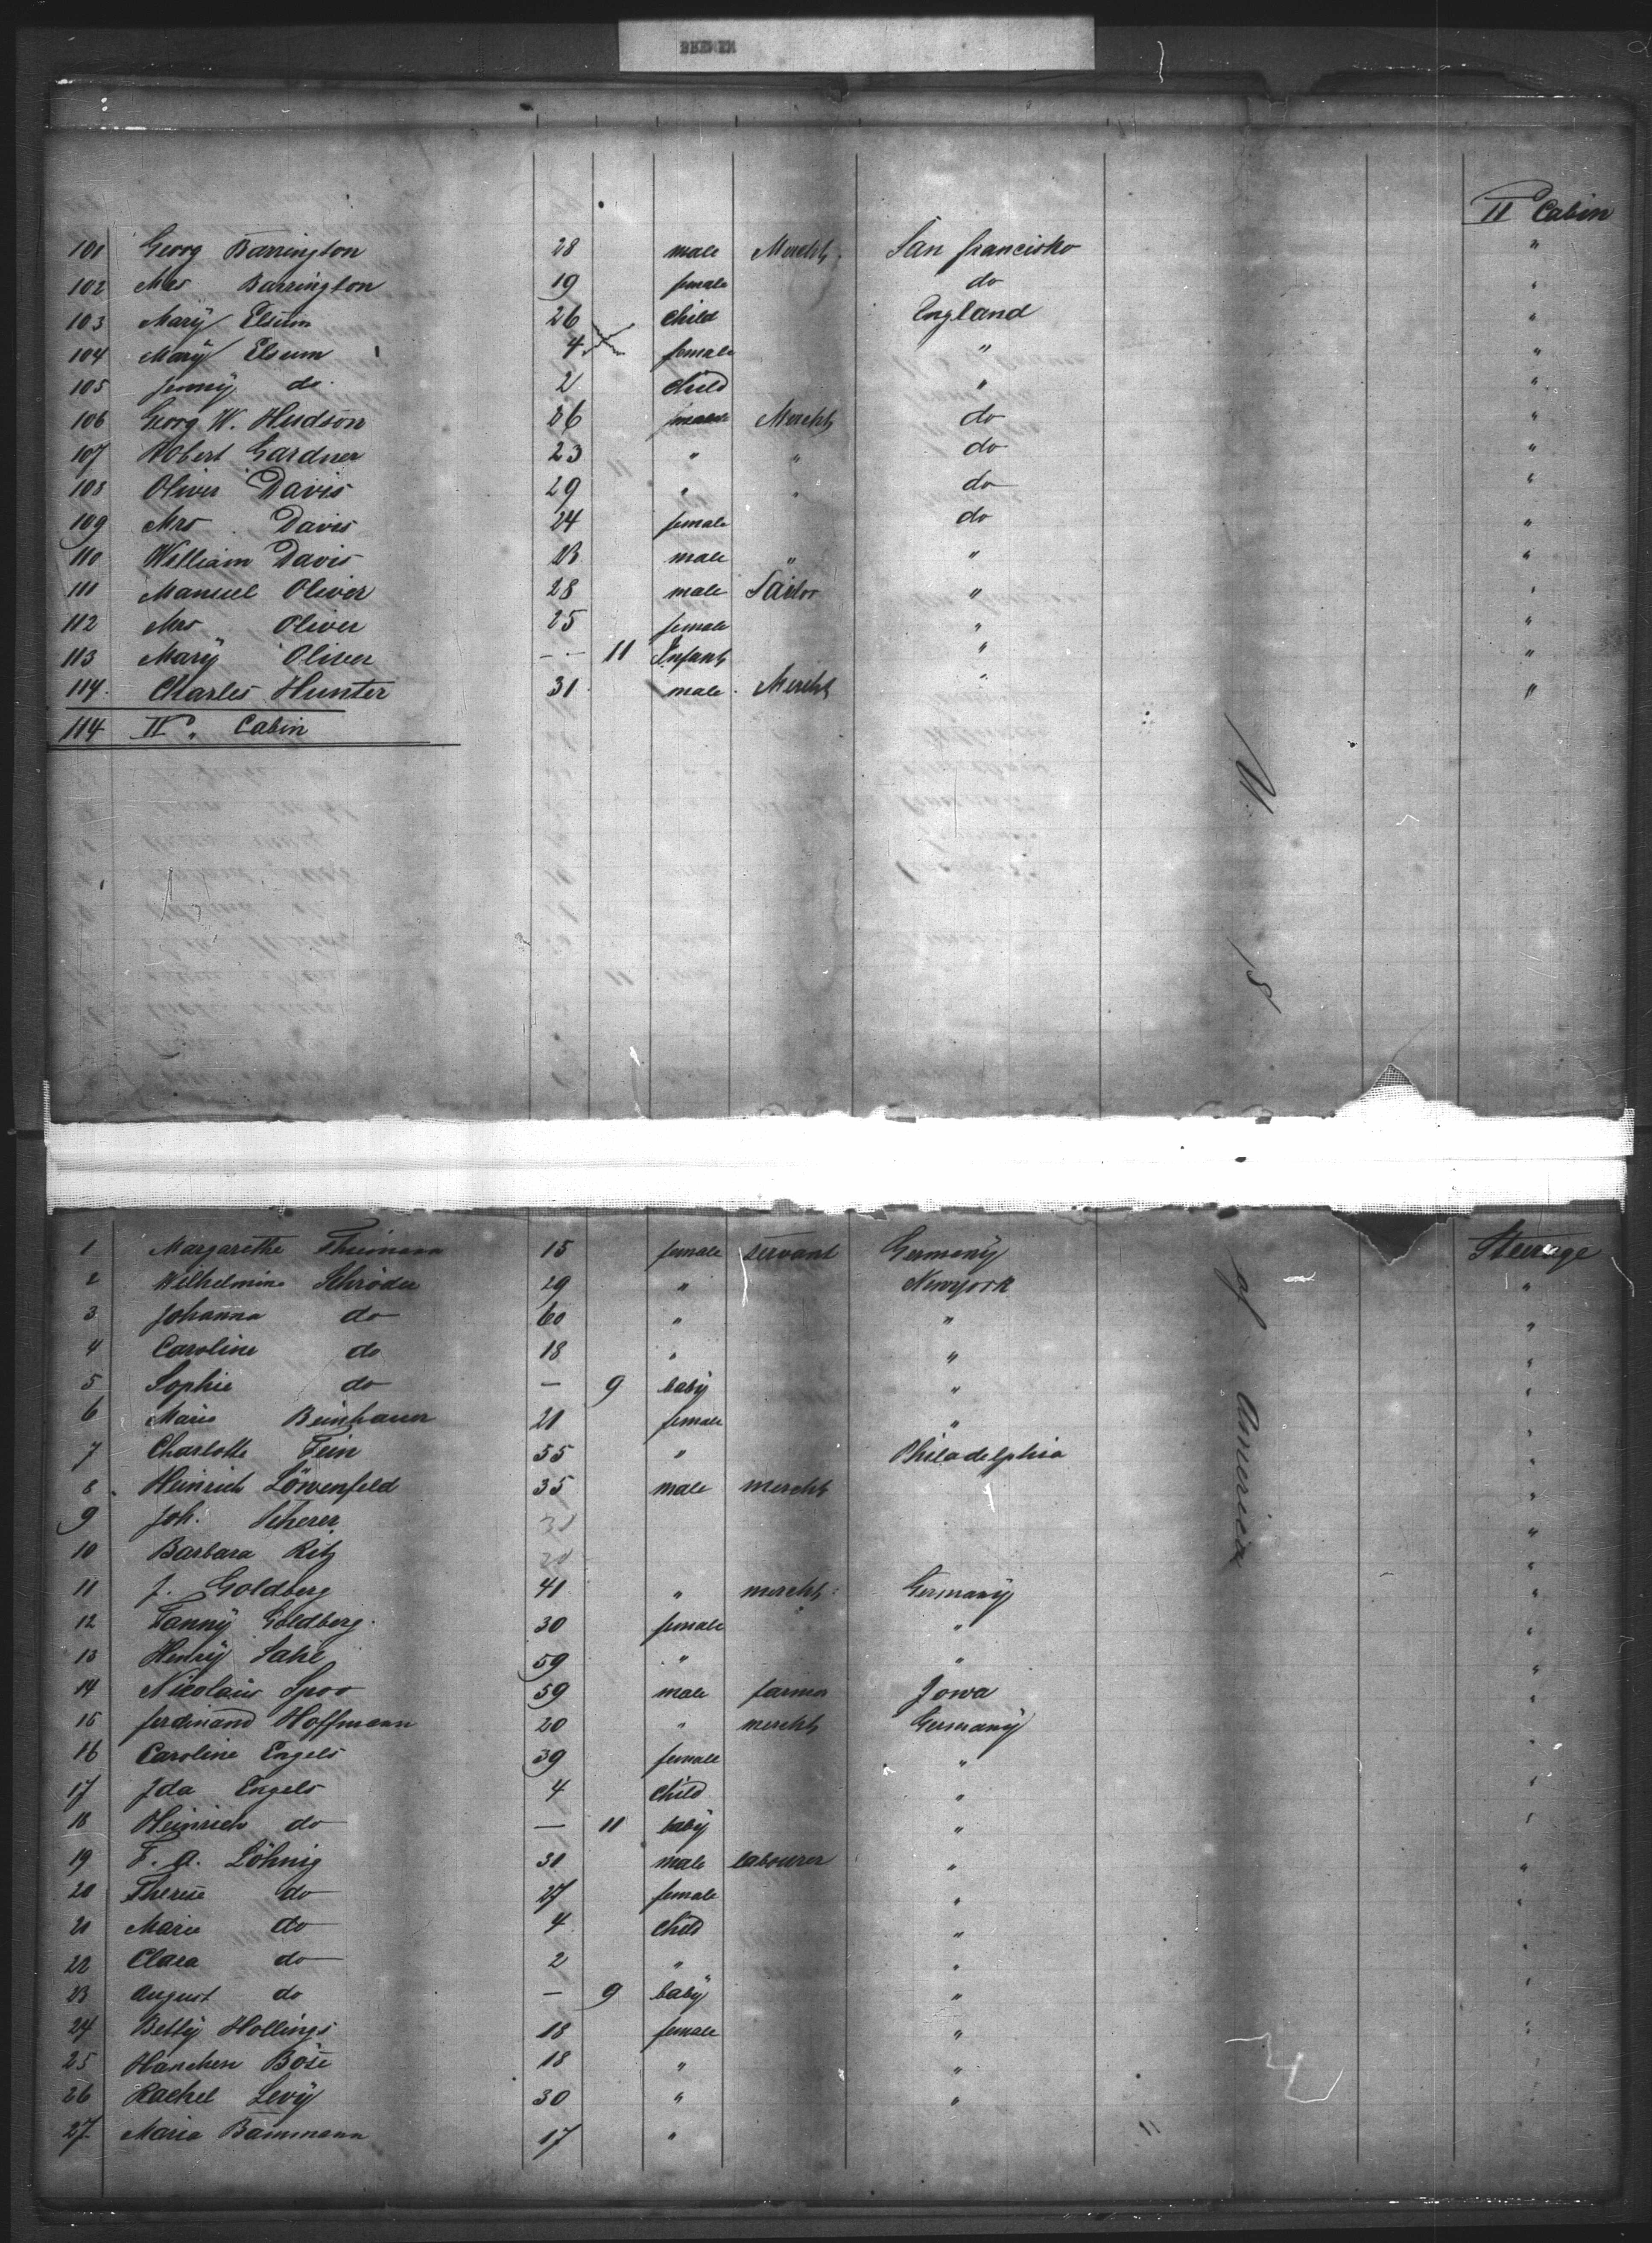 BREMEN
II Cabin
101 Georg Barrington 28 male Mercht San francisko "
102 Mrs Barrington 19 female do "
103 Marÿ Elsum 26 child England "
104 Marÿ Elsum 4 female " "
105 Jennÿ do 2 child " "
106 Georg W. Hudson 26 male Mercht do "
107 Robert Gardner 23 " " do "
108 Oliver Davis 29 " " do "
109 Mrs Davis 24 female do "
110 William Davis 23 male " " "
111 Manuel Oliver 28 male Sailor " "
112 Mrs Oliver 25 female " "
113 Marÿ Oliver — 11 Infant " "
114. Charles Hunter 31 male Mercht " "
114 II. Cabin
U. S of America
1 Margarethe Thiemann 15 female servant Germanÿ Steerage
2 Wilhelmine Schröder 29 " Newyork "
3 Johanna do 60 " " "
4 Caroline do 18 " " "
5 Sophie do — 9 babÿ " "
6 Marie Beinhauer 21 female " "
7 Charlotte Fein 55 " Philadelphia "
8 Heinrich Löwenfeld 35 male mercht "
9 Joh. Scherer 31 "
10 Barbara Ritz 20 "
11 J. Goldberg 41 " mercht Germanÿ "
12 Fannÿ Goldberg 30 female " "
13 Henrÿ Sahl 59 " " "
14 Nicolaus Spoo 59 male farmer Jowa "
15 ferdinand Hoffmann 20 " mercht Germanÿ "
16 Caroline Engels 39 female " "
17 Jda Engels 4 child " "
18 Heinrich do — 11 babÿ " "
19 F. A. Löhnig 31 male labourer " "
20 Therese do 27 female " "
21 Marie do 4 child "
22 Clara do 2 " " "
23 August do — 9 babÿ " "
24 Bettÿ Hollings 18 female " "
25 Hanchen Böse 18 " " "
26 Rachel Levÿ 30 " " "
27. Maria Bammann 17 "